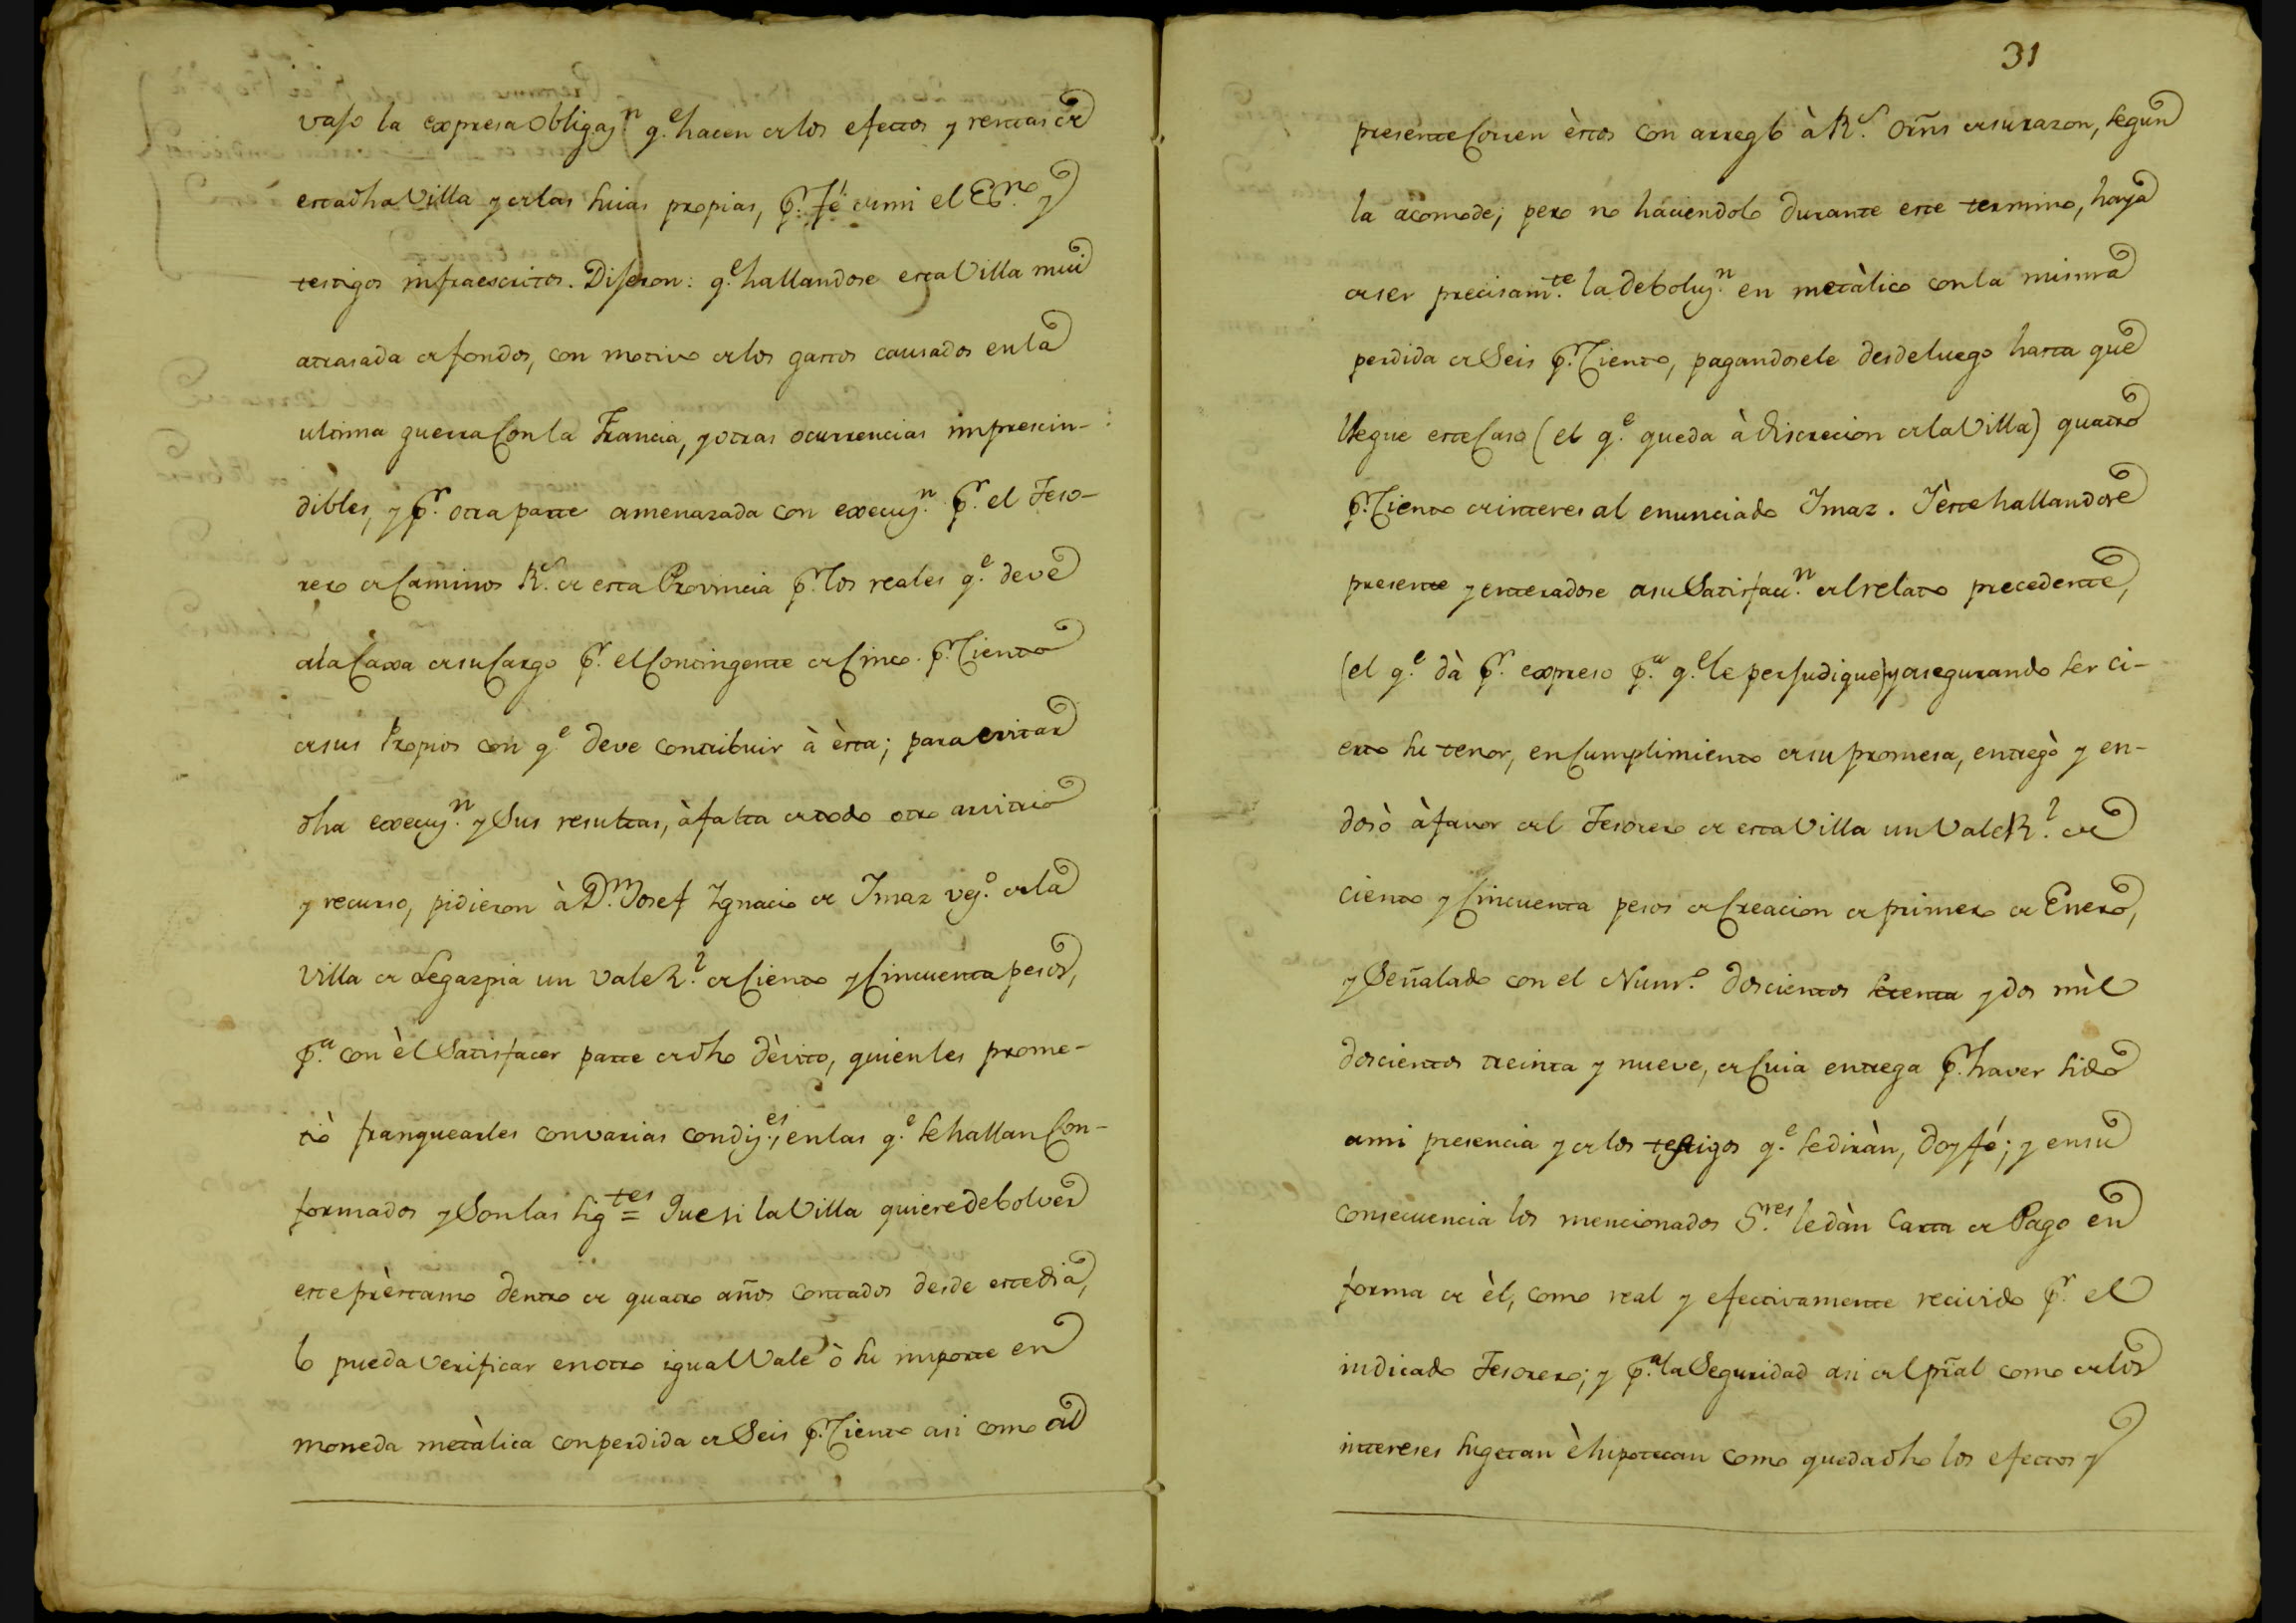 vajo la expresa Obligaz.n q.e hacen de los efectos y rentas de
esta dha Villa y de las suias propias, p.r fé de mi el Esn.no y
testigos infraescritos. Dijeron: q.e hallandose esta Villa mui
atrasada de fondos, con motivo de los gastos causados en la
ultima guerra Con la Francia, y otras ocurrencias imprescin-
dibles, y p.r otra parte amenazada con execuz.n p.r el Teso-
rero de Caminos R.s de esta Provincia p.r los reales q.e deve
a la Caxa de su Cargo p.r el Contingente de Cinco p.r Ciento
de sus Propios con q.e deve contribuir à èsta; para evitar
dha execuz.n y Sus resultas, à falta de todo otro arvitrio
y recurso, pidieron à D.n Josef Ygnacio de Ymaz vez.o de la
Villa de Legazpia un Vale R.l de Ciento y Cincuenta pesos,
p.a con èl Satisfacer parte de dho dèvito, quien les prome-
tiò franquearles con varias condiz.es, en las q.e se hallan Con-
formados y Son las sig.tes = Que si la Villa quiere debolver
este prèstamo dentro de quatro años contados desde este dia,
lo pueda verificar en otro igual Vale ò su importe en
moneda metàlica con perdida de Seis p.r Ciento asi como al
31
presente Corren èstos con arreglo à R.s Orñs de su razon, segun
la acomode; pero no haciendolo durante este termino, haya
de ser precisam.te la deboluz.n en metàlico con la misma
perdida de Seis p.r Ciento, pagandosele desde luego hasta que
llegue este Caso (el q.e queda à discrecion de la Villa) quatro
p.r Ciento de interes al enunciado Ymaz. Y èste hallandose
presente y enteradose a su Satisfacc.n del relato precedente,
(el q.e dà p.r expreso p.a q.e le perjudique) y asegurando ser ci-
erto su tenor, en Cumplimiento de su promesa, entregò y en-
dosò à favor del Tesorero de esta Villa un Vale R.l de
ciento y Cincuenta pesos de Creacion de primero de Enero,
y Señalado con el Num.o doscientos setenta y dos mìl
doscientos treinta y nueve, de Cuia entrega p.r haver sido
a mi presencia y de los testigos q.e se diràn, doy fé; y en su
consecuencia los mencionados S.res le dàn Carta de Pago en
forma de èl, como real y efectivamente recivido p.r el
indicado Tesorero; y p.a la Seguridad asi del pral como de los
intereses sugetan è hipotecan como queda dho los efectos y